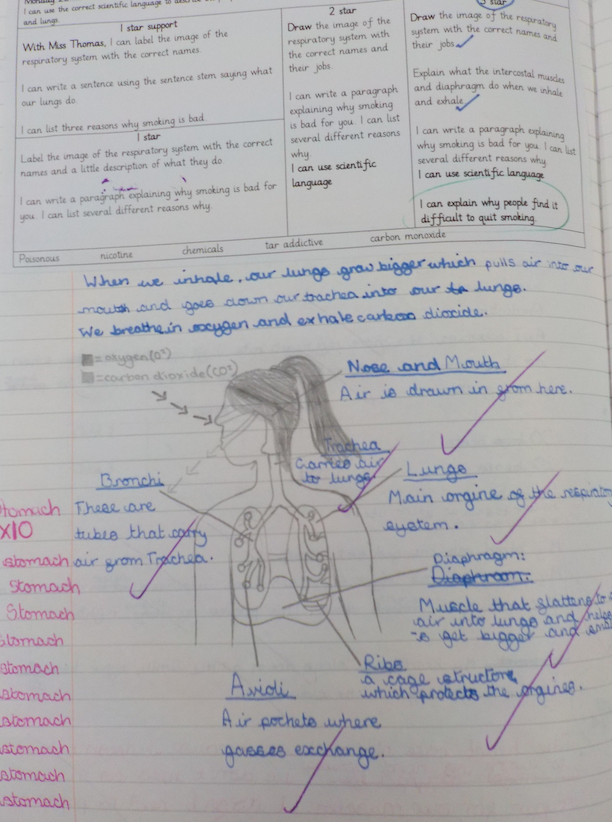 I can use the correct scientific language to
and lungs.
1 star support
With Miss Thomas, I can label the image of the
respiratory system with the correct names.
I can write a sentence using the sentence stem saying what
our lungs do.
I can list three reasons why smoking is bad.
1 star
Label the image of the respiratory system with the correct
names and a little description of what they do.
I can write a paragraph explaining why smoking is bad for
you. I can list several different reasons why.
2 star
Draw the image of the
respiratory system with
the correct names and
their jobs.
I can write a paragraph
explaining why smoking
is bad for you. I can list
several different reasons
why.
I can use scientific
language
3 star
Draw the image of the respiratory
system with the correct names and
their jobs.
Explain what the intercostal muscles
and diaphragm do when we inhale
and exhale.
I can write a paragraph explaining
why smoking is bad for you. I can list
several different reasons why.
I can use scientific language
I can explain why people find it
difficult to quit smoking.
Poisonous nicotine chemicals tar addictive carbon monoxide
When we inhale, our lungs grow bigger which pulls air into our
mouth and goes down our trachea into our lungs.
We breathe in oxygen and exhale carbon dioxide.
= oxygen (O²)
= carbon dioxide (CO²)
Nose and Mouth
Air is drawn in from here.
Trachea
Carries air
to lungs.
Lungs
Main orgine of the respirato
system.
Bronchi
These are
tubes that carry
air from Trachea.
Diaphragm:
Diaphroom:
Muscle that flattens to
air into lungs and helps
to get bigger and
Ribs
a cage structore
which protects the orgines.
Avioli
Air pockets where
gasses exchange.
Stomach
x10
stomach
Stomach
Stomach
Stomach
stomach
stomach
stomach
stomach
stomach
stomach